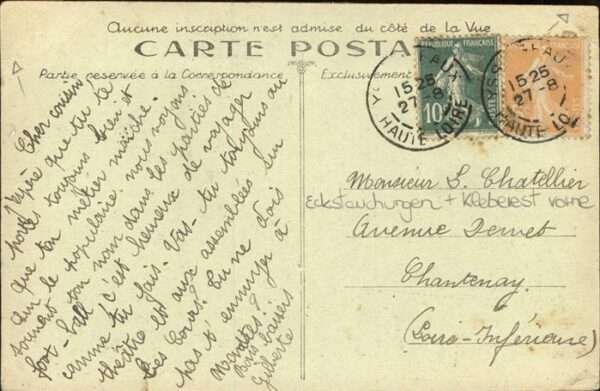 Aucune inscription n'est admise du côté de la Vue
CARTE POSTA
Partie réservée à la Correspondance
Exclusivement
Cher cousin
J'espère que tu te
portes toujours bien et
que ton métier marche.
Sur le populaire nous voyons
souvent ton nom dans les parties de
foot-ball c'est heureux de voyager
comme tu fais. Vas-tu toujours au
théâtre et aux assemblées sur
les Cours. Tu ne dois
pas t'ennuyer à
Nantes!
Bons baisers
Gilberte
RÉPUBLIQUE FRANÇAISE
10
15 25
27-8
HAUTE LOIRE
15 25
27-8
HAUTE LOI
Monsieur L. Chatellier
Eckstauchungen + Kleberest vorne
Avenue
Chantenay
(Loire-Inférieure)